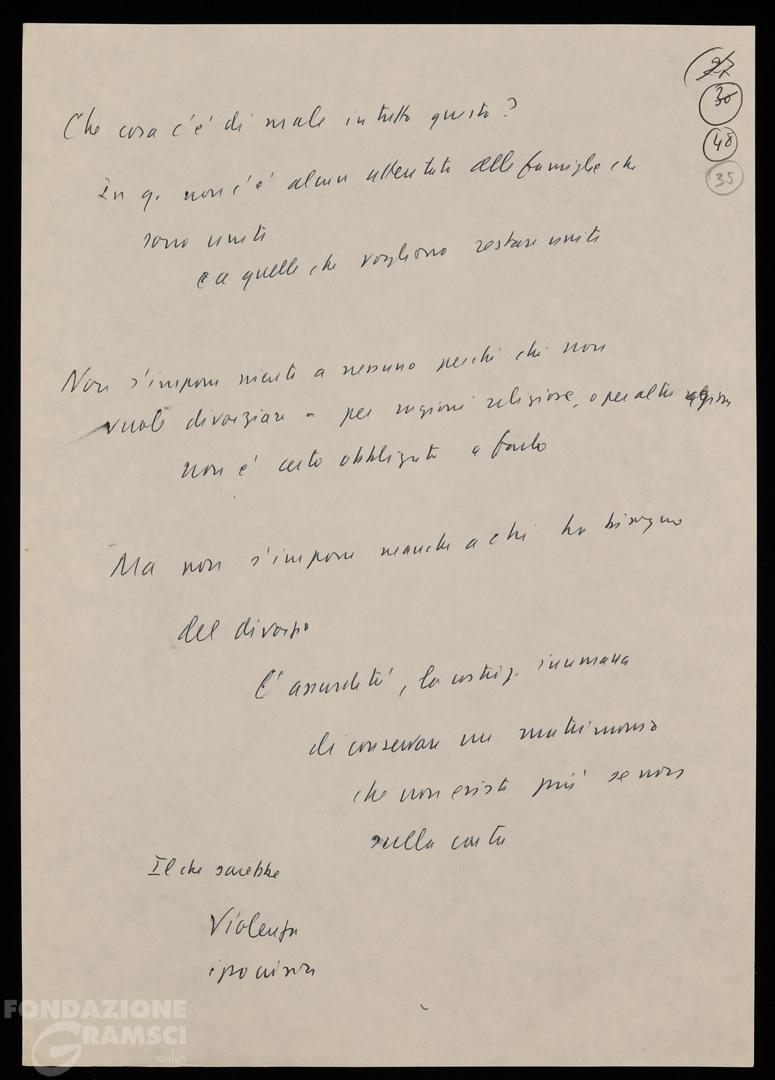 27
30
48
35
Che cosa c'è di male in tutto questo?
In q. non c'è alcun attentato alle famiglie che
sono unite
e a quelle che vogliono restare unite
Non s'impone niente a nessuno perché chi non
vuole divorziare - per ragioni religiose, o per altre ragioni
non è certo obbligato a farlo
Ma non s'impone neanche a chi ha bisogno
del divorzio
l'assurdità, la costriz. inumana
di conservare un matrimonio
che non esiste più se non
sulla carta
Il che sarebbe
Violenza
ipocrisia
FONDAZIONE
GRAMSCI
onlus